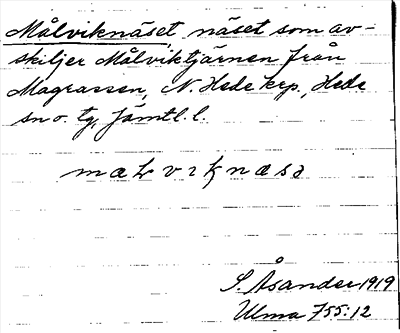 Målviknäset, näset som av-
skiljer Målviktjärnen från
Magrassen, N. Hede krp., Hede
sn o. tg, Jämtl. l.
maLvɪknæsə
S. Åsander 1919
Ulma 755:12